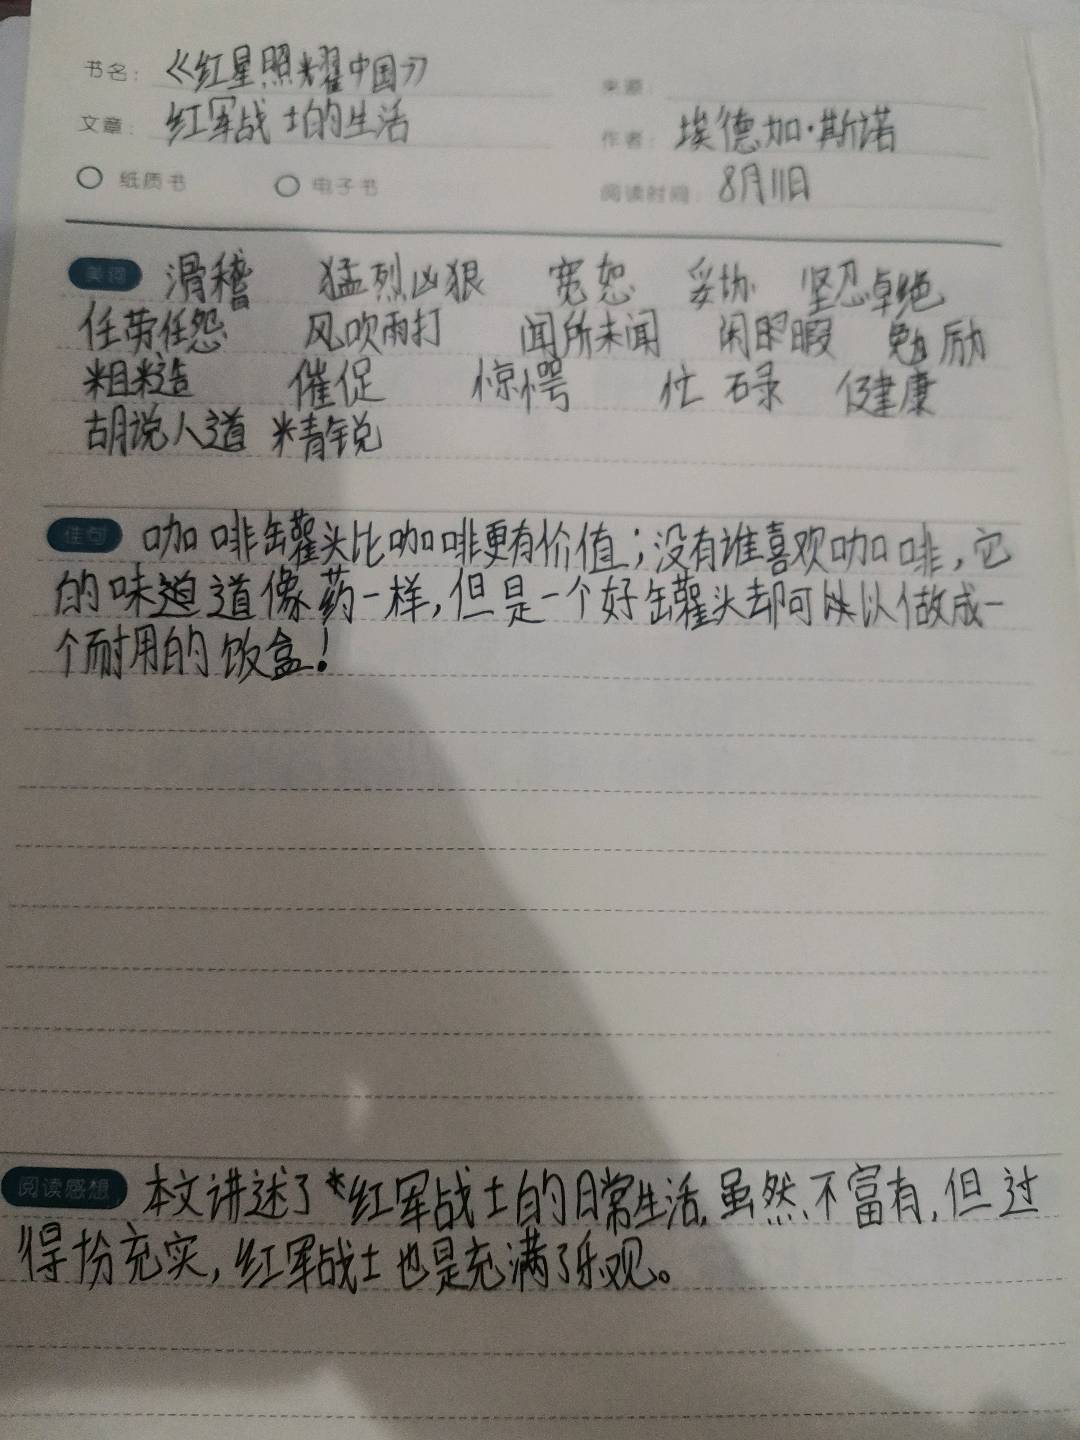 书名: 《红星照耀中国》
来源:
文章: 红军战士的生活
作者: 埃德加·斯诺
纸质书 电子书
阅读时间: 8月11日
美词 滑稽 猛烈凶狠 宽恕 妥协 坚忍卓绝
任劳任怨 风吹雨打 闻所未闻 闲暇 勉励
粗糙 催促 惊愕 忙碌 健康
胡说人道 精锐
佳句 咖啡罐头比咖啡更有价值;没有谁喜欢咖啡,它
的味道道像药一样,但是一个好罐头却可以做成一
个耐用的饭盒!
阅读感想 本文讲述了红军战士的日常生活,虽然不富有,但过
得扮充实,红军战士也是充满了乐观。